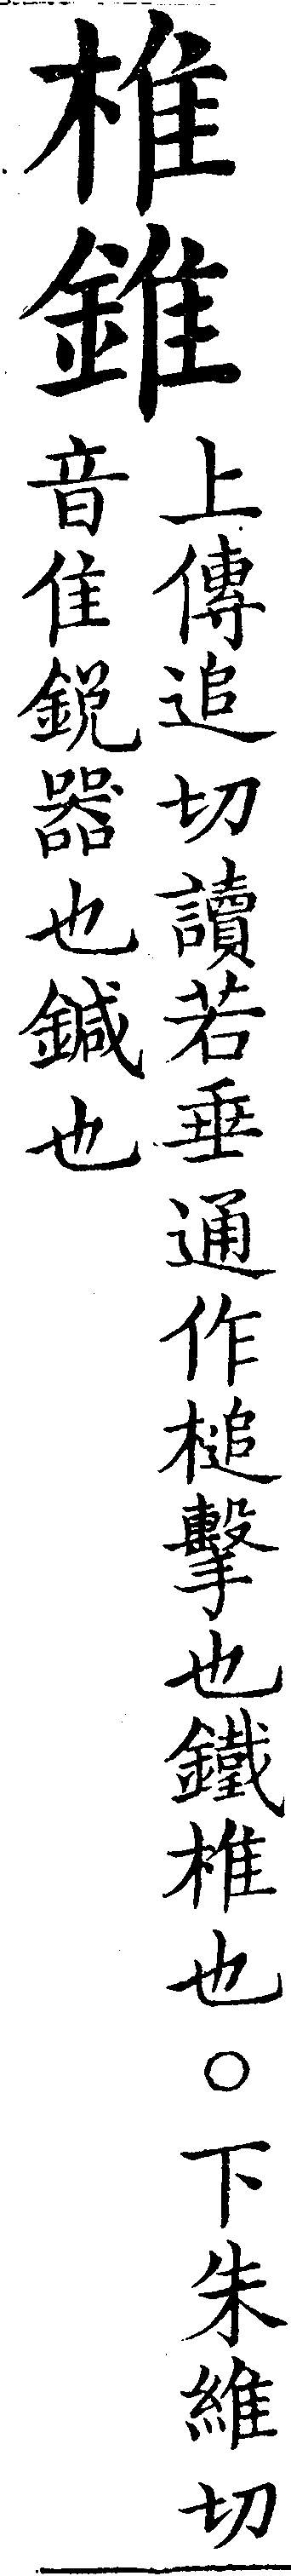 椎錐
上傳追切讀若垂通作槌擊也鐵椎也○下朱維切
音隹銳器也鍼也